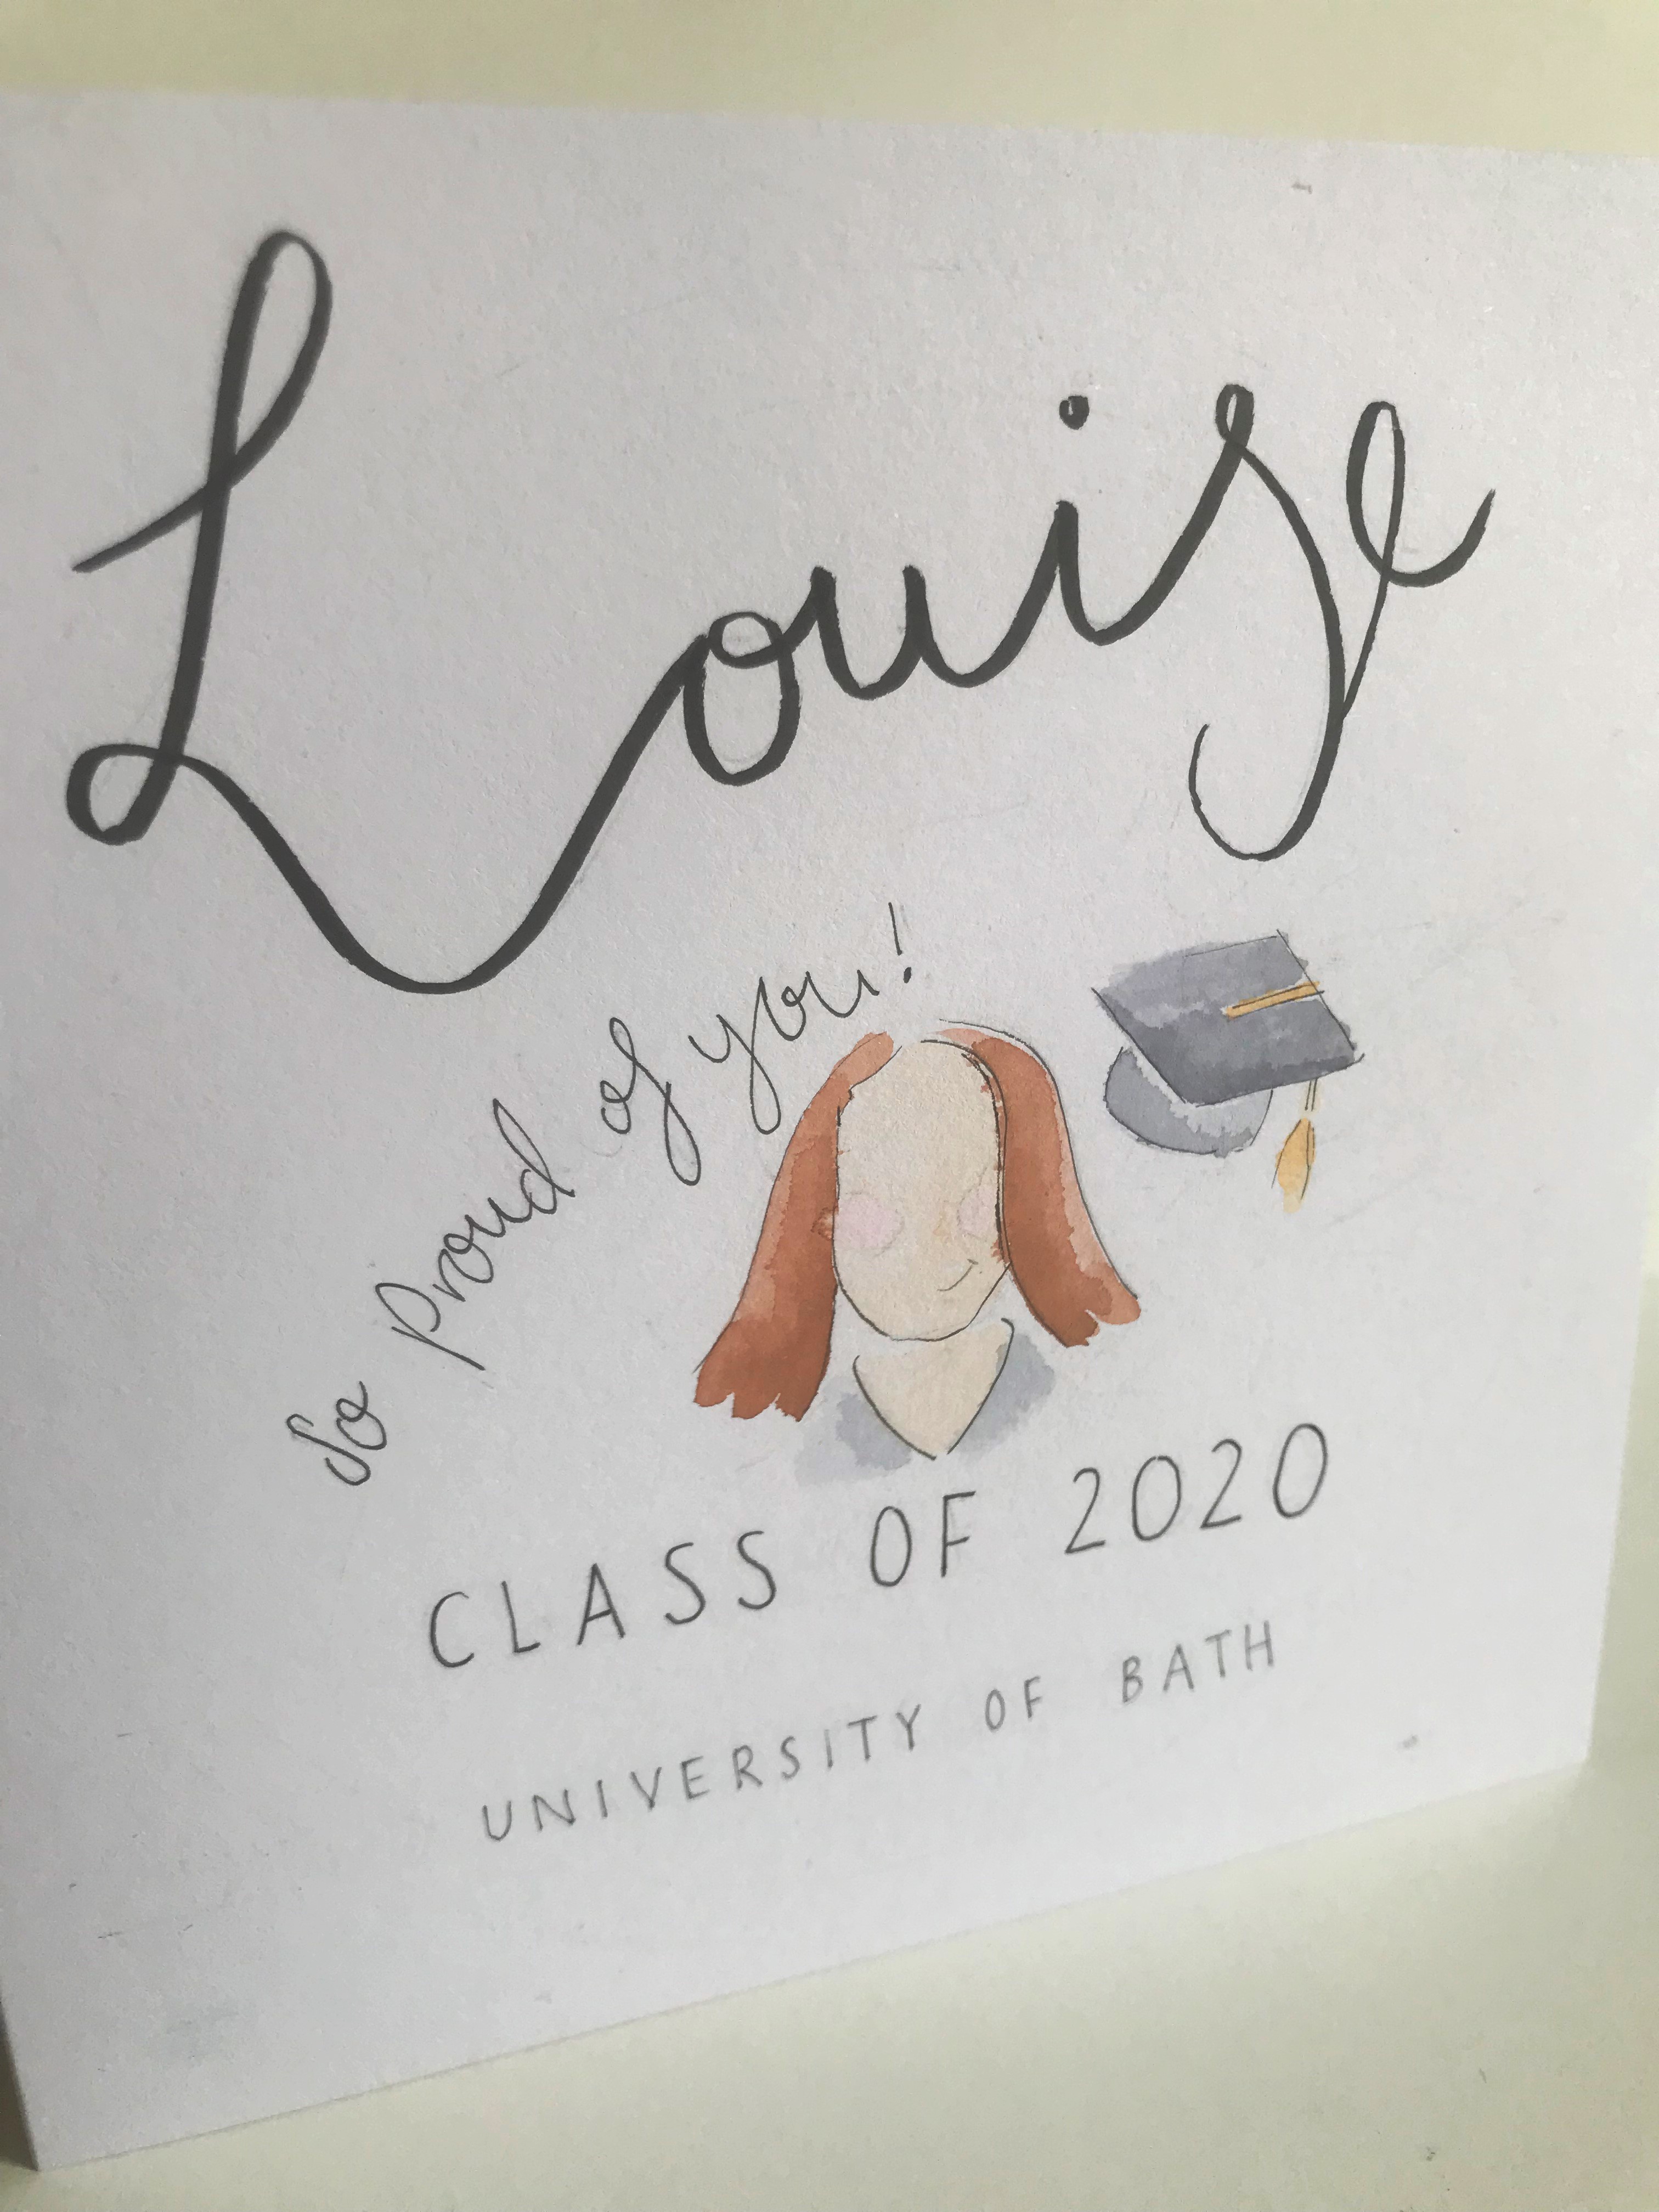 Louise
So proud of you!
CLASS OF 2020
UNIVERSITY OF BATH